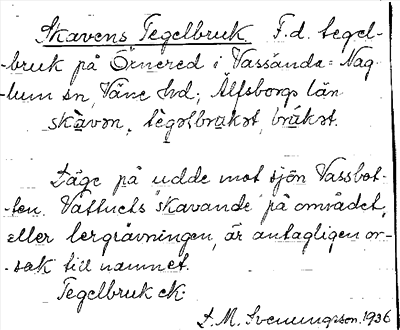 Skavens Tegelbruk F.d. tegel-
-bruk på Örnered i Vassända-Nag-
-lum sn, Väne hd; Älfsborgs län
skàvən, tègəlbrukət, brúkət.
Läge på udde mot sjön Vassbot-
ten. Vattnets "skavande" på området,
eller lergrävningen, är antagligen or-
-sak till namnet.
Tegelbruk ek.
L. M. Svenungsson. 1936